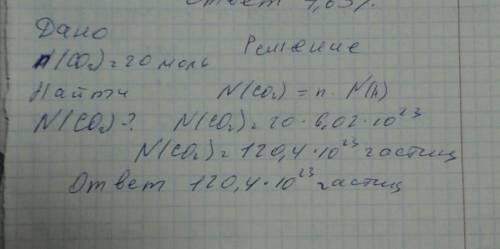 Ответ 4,65%.
Дано
n(CO₂) = 20 моль
Решение
Найти
N(CO₂) = n · N(A)
N(CO₂) - ? N(CO₂) = 20 · 6,02 · 10²³
N(CO₂) = 120,4 · 10²³ частиц
Ответ 120,4 · 10²³ частиц